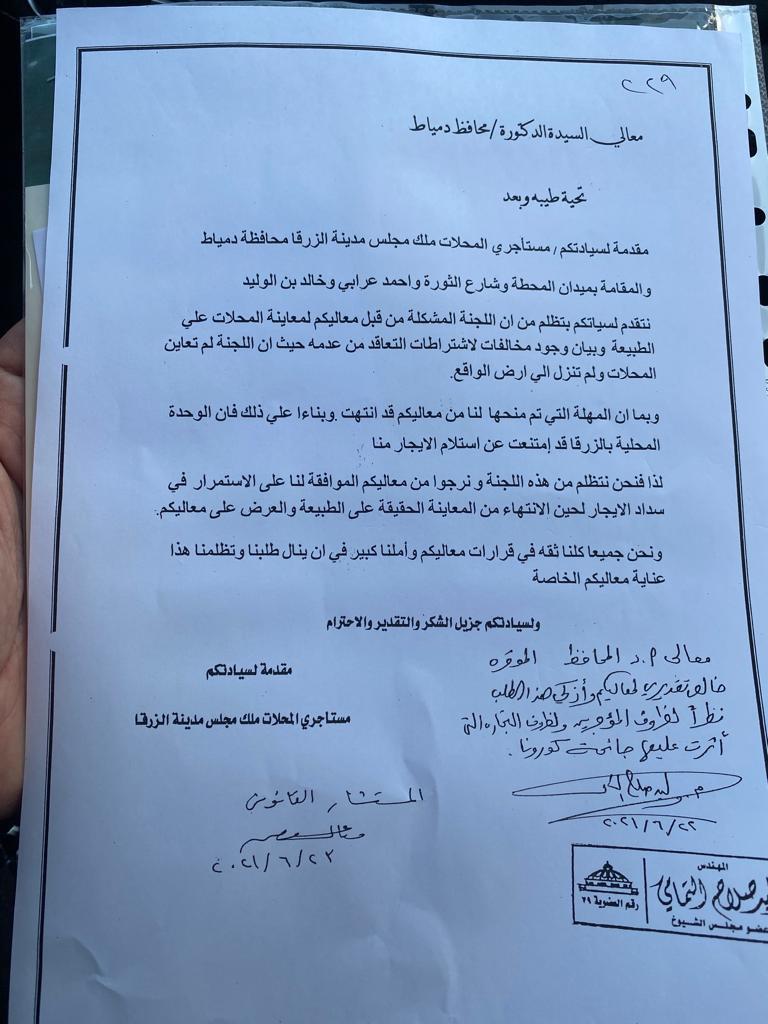 ٢٢٩
معالي السيدة الدكتورة/محافظ دمياط
تحية طيبه وبعد
مقدمة لسيادتكم/ مستأجري المحلات ملك مجلس مدينة الزرقا محافظة دمياط
والمقامة بميدان المحطة وشارع الثورة واحمد عرابي وخالد بن الوليد
نتقدم لسياتكم بتظلم من ان اللجنة المشكلة من قبل معاليكم لمعاينة المحلات علي
الطبيعة وبيان وجود مخالفات لاشتراطات التعاقد من عدمه حيث ان اللجنة لم تعاين
المحلات ولم تنزل الي ارض الواقع.
وبما ان المهلة التي تم منحها لنا من معاليكم قد انتهت وبناءا علي ذلك فان الوحدة
المحلية بالزرقا قد إمتنعت عن استلام الايجار منا
لذا فنحن نتظلم من هذه اللجنة و نرجوا من معاليكم الموافقة لنا على الاستمرار في
سداد الايجار لحين الانتهاء من المعاينة الحقيقة على الطبيعة والعرض على معاليكم.
ونحن جميعا كلنا ثقه في قرارات معاليكم وأملنا كبير في ان ينال طلبنا وتظلمنا هذا
عناية معاليكم الخاصة
ولسيادتكم جزيل الشكر والتقدير والاحترام
مقدمة لسيادتكم
مستاجري المحلات ملك مجلس مدينة الزرقا
معالى م.د المحافظ الموقره
خالص تقديرى لمعاليكم وأزكى هذا الطلب
نظراً لظروف المؤجرين ولظروف التجاره التى
أثرت عليها جائحة كورونا.
٢٠٢١/٦/٢٢
المستشار القانونى
٢٠٢١/٦/٢٣
المهندس
صلاح التمامي
عضو مجلس الشيوخ
رقم العضوية ٢٩